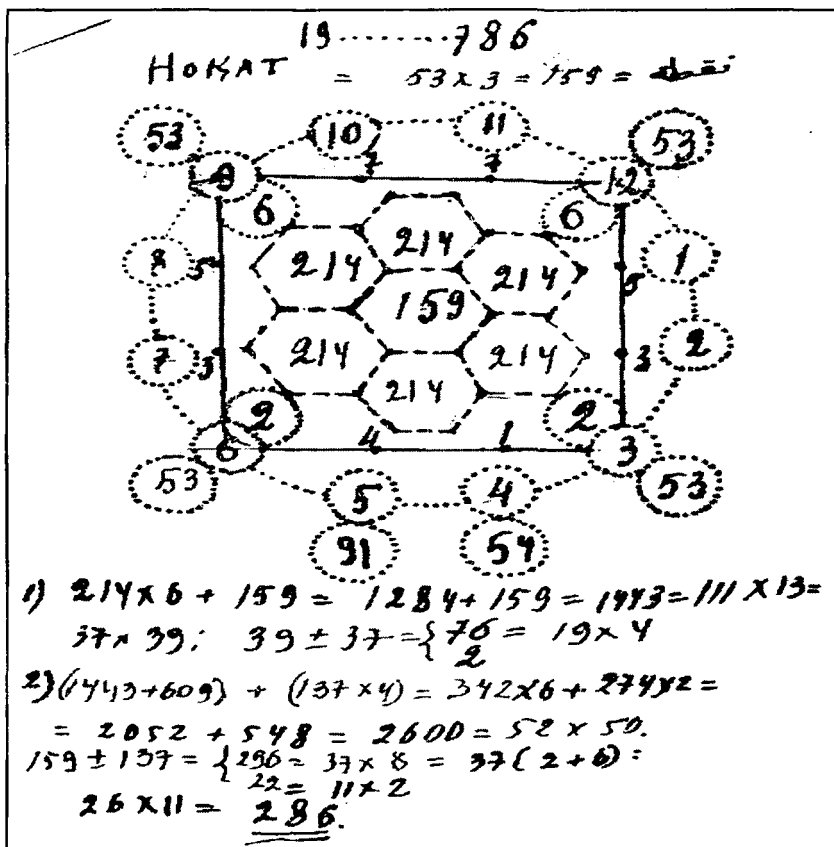 19.........786
НОКАТ = 53 x 3 = 159 = نقطه
53 10 11 53
9 7 7 12
6 6
8 5 214 214 214 5 1
159
7 3 214 214 3 2
214
2 2
6 4 1 3
53 5 4 53
91 54
1) 214 x 6 + 159 = 1284 + 159 = 1443 = 111 x 13 =
37 x 39; 39 ± 37 = { 76 = 19 x 4
2
2) (1443+609) + (137 x 4) = 342 x 6 + 274 x 2 =
= 2052 + 548 = 2600 = 52 x 50.
159 ± 137 = { 296 = 37 x 8 = 37 ( 2 + 6 ) :
22 = 11 x 2
26 x 11 = 286.